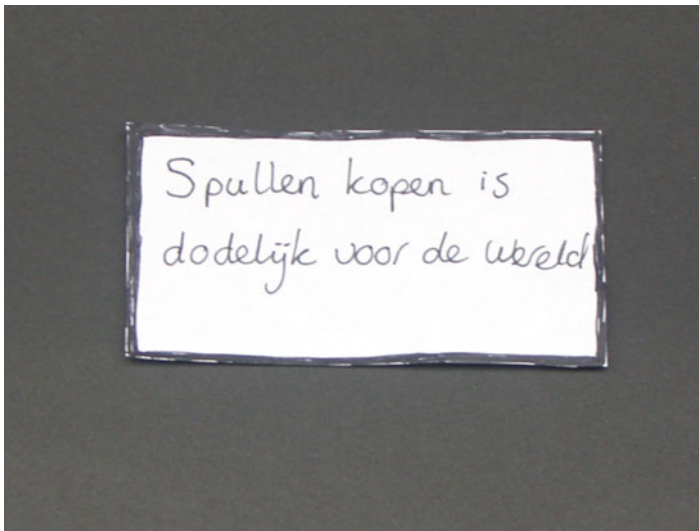 Spullen kopen is
dodelijk voor de wereld